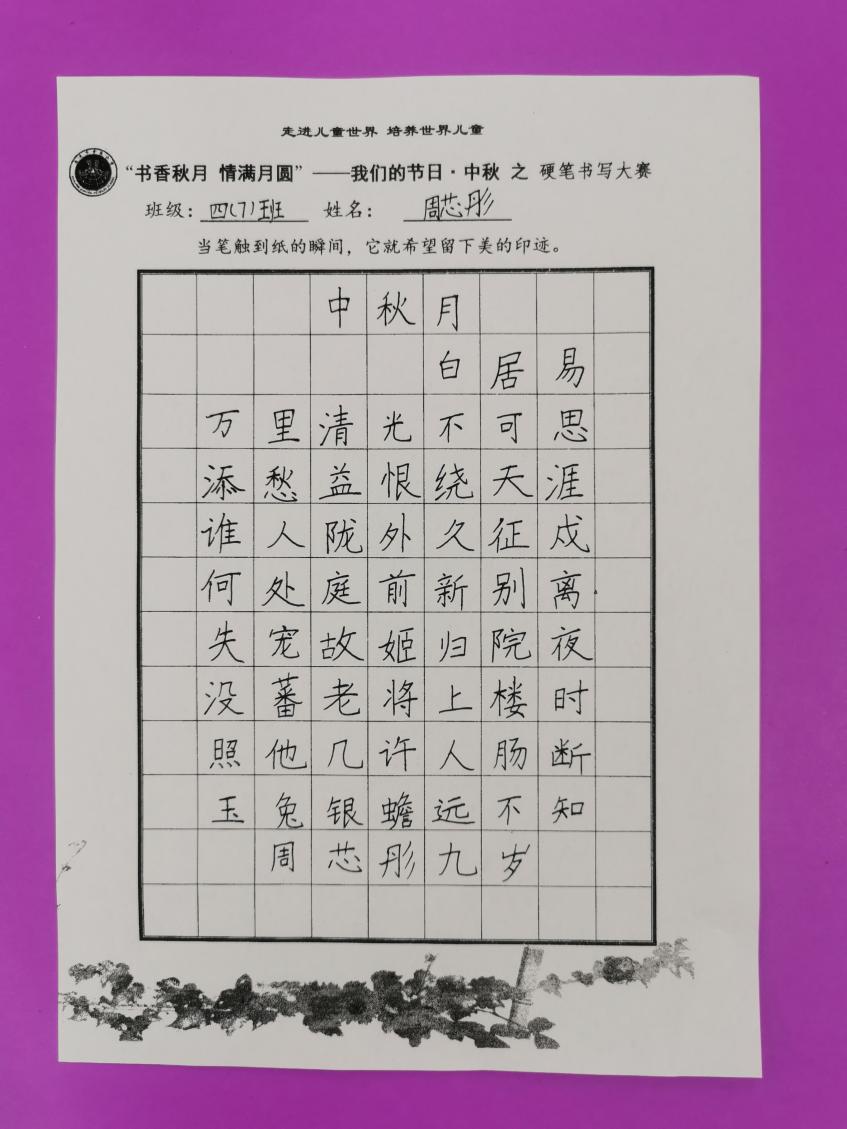 走进儿童世界 培养世界儿童
“书香秋月 情满月圆”——我们的节日·中秋 之 硬笔书写大赛
班级：四(7)班 姓名：周芯彤
当笔触到纸的瞬间，它就希望留下美的印迹。
中秋月
白居易
万里清光不可思
添愁益恨绕天涯
谁人陇外久征戍
何处庭前新别离
失宠故姬归院夜
没蕃老将上楼时
照他几许人肠断
玉兔银蟾远不知
周芯彤九岁